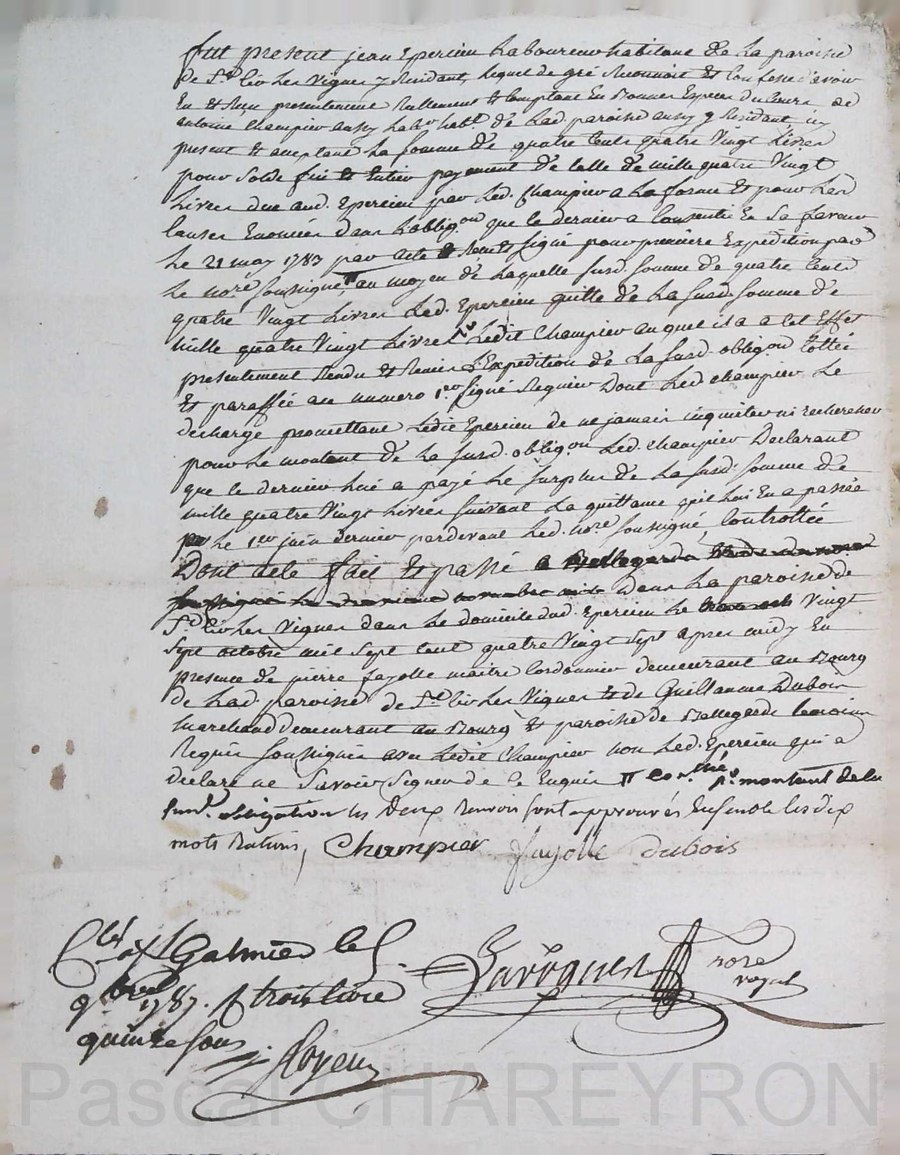 fut présent jean Epercieu Laboureur habitant de La paroisse
De St Cir Les Vignes y Residant, lequel de gré Reconnoit et Confesse d'avoir
Eu et Reçu presentement Reellement et Comptant En Bonnes Especes du Cours, de
antoine Champier aussy Labr habt. De Lad. paroisse aussy y Residant, icy
present et aceptant La Somme de quatre Cents quatre Vingt Livres
pour Solde fin et Entier payement de Celle de mille quatre Vingt
Livres due aud. Epercieu par Led. Champier a La forme Et pour Les
Causes Enoncées Dans L'obligon que le dernier a Consentie En Sa faveur
Le 21 may 1783 par acte Signé pour premiere Expedition par
Le nore Soussigné, au moyen de Laquelle Susd. Somme de quatre Cents
quatre Vingt Livres Led. Epercieu quitte De La Susd. Somme De
mille quatre Vingt Livres Ledit Champier auquel il a a Cet Effet
presentement Rendu et Remis L'Expedition De La Susd. obligon Cottée
Et paraffée au numero 1er Signé Dont Led. champier Le
decharge promettant Ledit Epercieu De ne jamais inquieter ni rechercher
pour Le montant De La Susd. obligon Led. Champier Declarant
que le dernier lui a payé Le Surplus De La Susd. Somme De
mille quatre Vingt Livres Suivant La quittance qu'il Lui En a passée
Le 1er juin dernier pardevant Led. nore Soussigné, Controllée
Dont acte fait Et passé a Bellegarde
Dans La paroisse De
St Cir Les Vignes dans Le domicile dud. Epercieu Le Vingt
Sept octobre mil Sept Cent quatre Vingt Sept apres midy En
presence De pierre fayolle maitre Cordonnier demeurant au Bourg
De Lad. paroisse De St Cir Les Vignes Et De Guillaume Dubois
Marchand demeurant au Bourg Et paroisse De Bellegarde temoins
Requis Soussignés avec Ledit Champier non Led. Epercieu qui a
déclaré ne Savoir Signer De Ce Enquis po montant de la
susd. obligation Les Deux Renvois Sont approuvés Ensemble Les dix
mots Raturés, Champier fayolle dubois
Clé a St Galmier le
9bre 1787. R trois livre
quinze sous
Laroque nore
royal
Pascal CHAREYRON